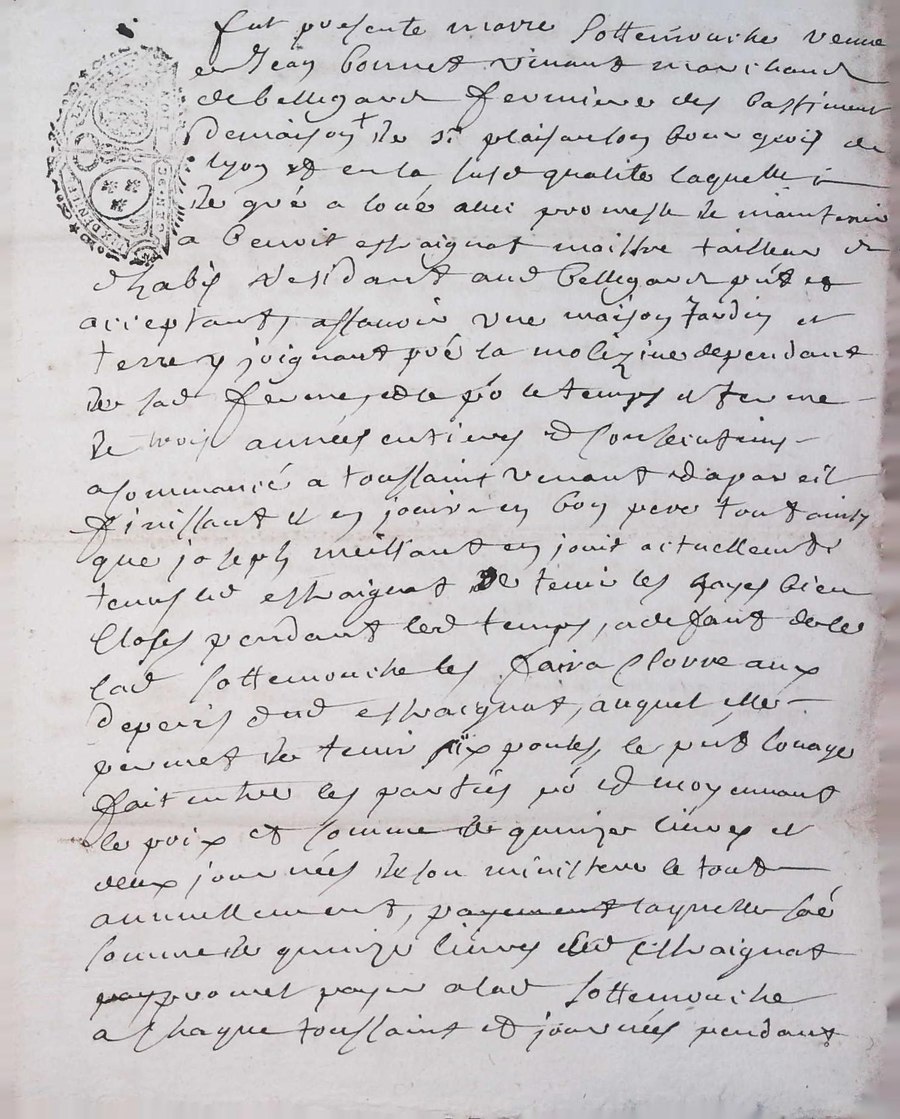 fut presente marie Sottemouche veuve
de Jean bonnet vivant marchand
de bellegard fermiere des bastiment
de maison de Sr plaisanson bourgeois de
lyon et en la susd qualité laquelle
de gré a loué avec promesse de maintenir
a benoit estraignat maistre tailleur
d habis residant aud bellegard pnt et
acceptant, assavoir une maison Jardin et
terre y joignant la molizine dependant
de lad ferme, et le po le temps et terme
de trois années entieres et consecutives
a commancé a toussaint venant et a pareil
finissant et en jouira en bon pere tout ainsy
que joseph meillant en jouit actuellement
tenu led estraignat de tenir les hayes bien
closes pendant led temps, a defaut de ce
lad Sottemouche les faira clorre aux
depens dud estraignat, auquel elle
permet de tenir six poules, le pnt louage
fait entre les parties po et moyennant
le prix et somme de quinze livres et
deux journées de son ministere le tout
annuellement, payement laquelle
somme de quinze livres led Estraignat
pay promet payer a lad Sottemouche
a chaque toussaint et journées pendant